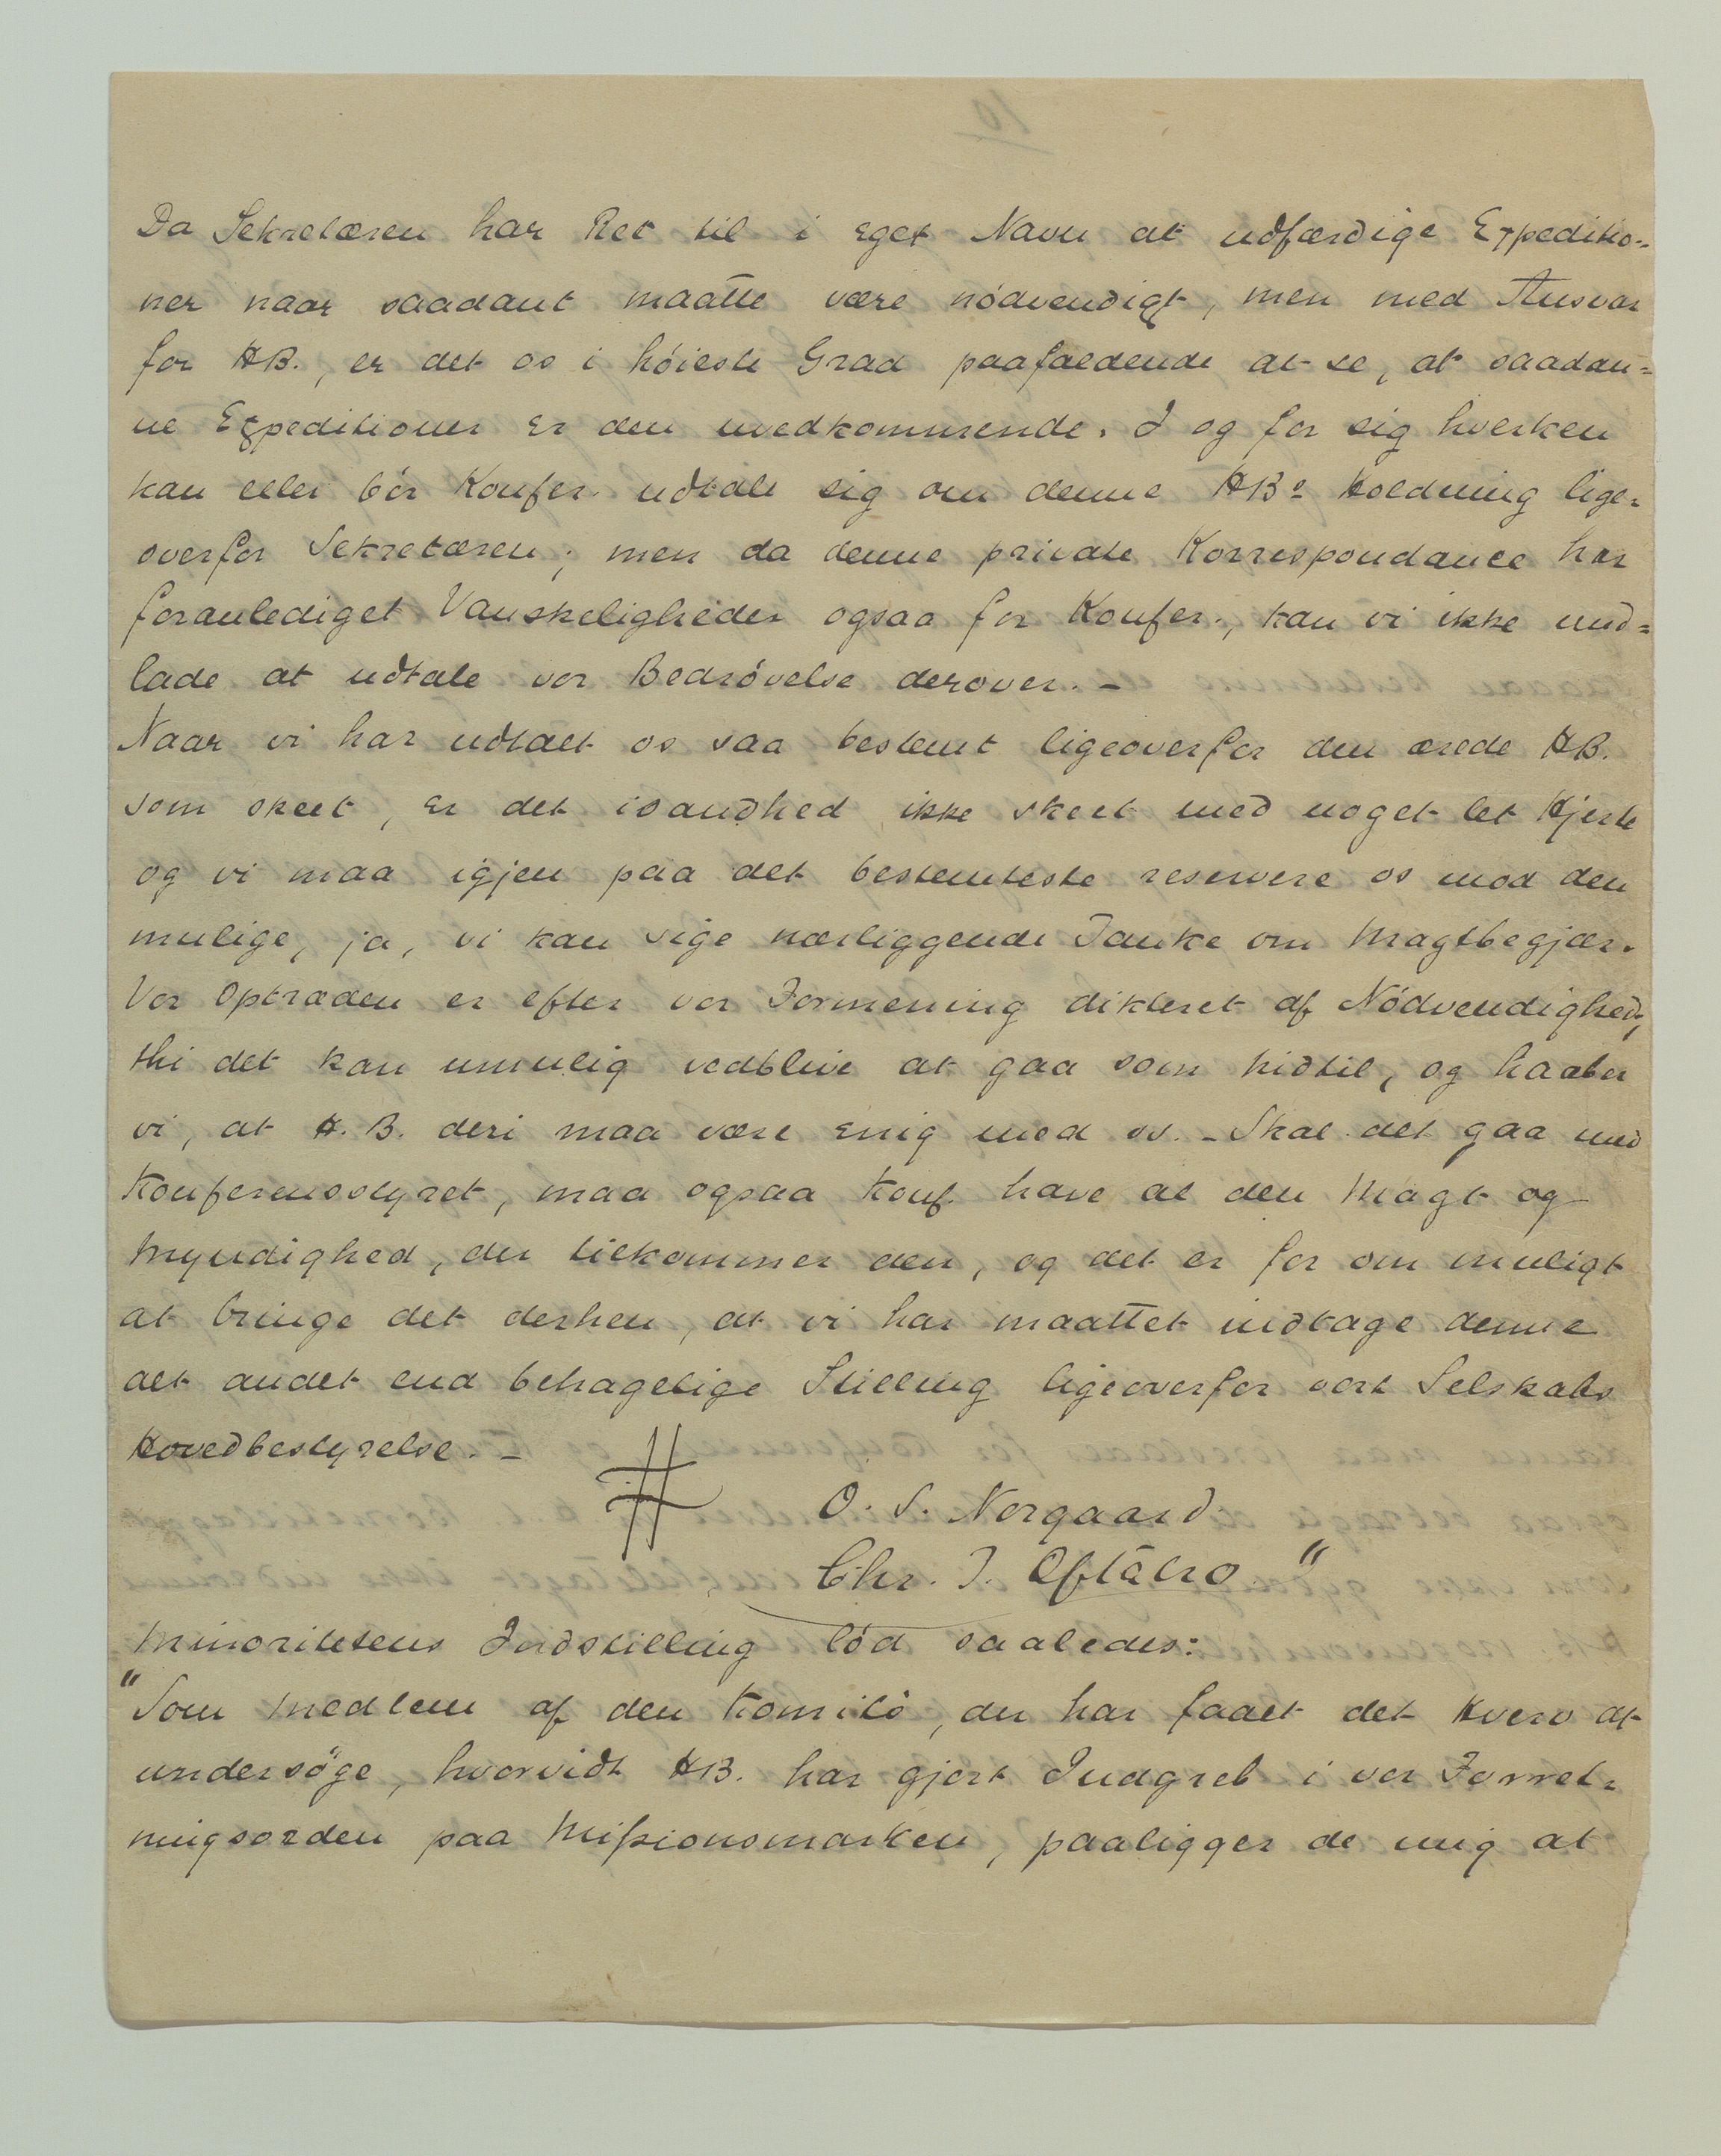 Da Sekretæren har Ret til i eget Navn at udfærdige Expeditio-
ner naar saadant maatte være nödvendigt, men med Ansvar
for HB., er det os i höieste Grad paafaldende at se, at saadan=
ne Expeditioner er den uvedkommende. I og for sig hverken
kan eller bör Konfer. udtale sig om denne HBs Holdning lige-
overfor Sekretæren; men da denne private Korrespondance har
foranlediget Vanskeligheder ogsaa for Konfer., kan vi ikke und=
lade at udtale vor Bedrövelse derover. –
Naar vi har udtalt os saa bestemt ligeoverfor den ærede HB.
som skeet, er det isandhed ikke skeet med noget let Hjerte
og vi maa igjen paa det bestemteste reservere os mod den
mulige, ja, vi kan sige nærliggende Tanke om Magtbegjær.
Vor Optræden er efter vor Formening dikteret af Nödvendighed,
thi det kan umulig vedblive at gaa som hidtil, og haaber
vi, at H.B. deri maa være enig med os. – Skal det gaa med
Konferensstyret, maa ogsaa Konf. have al den Magt og
Myndighed, der tilkommer den, og det er for om muligt
at bringe det derhen, at vi har maattet indtage denne
alt andet end behagelige Stilling ligeoverfor vort Selskabs
Hovedbestyrelse. –
O. S. Norgaard.
Chr. J. Oftebro "
Minoritetens Indstilling löd saaledes:
"Som Medlem af den Komité, der har faaet det Hverv at
undersöge, hvorvidt HB. har gjort Indgreb i vor Forret-
ningsorden paa Missionsmarken, paaligger de mig at